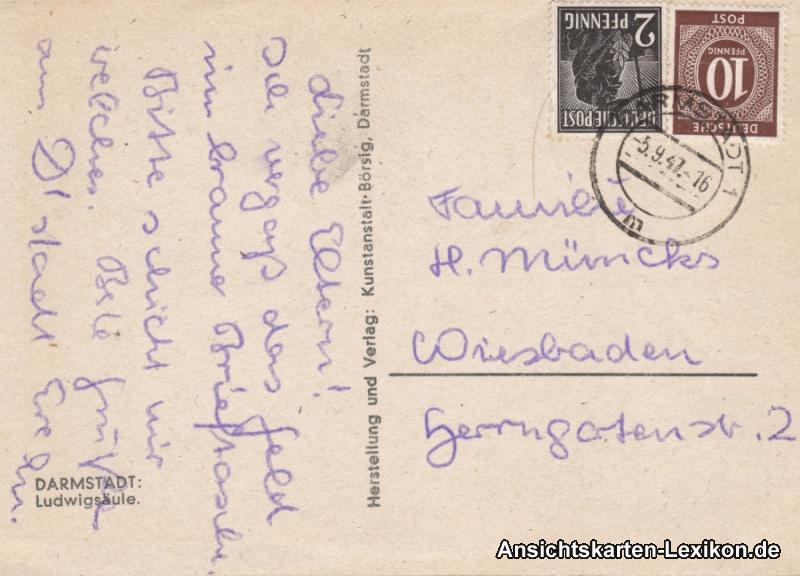 Liebe Eltern!
Ich vergaß das Geld
im braune Brieftasche.
Bitte schickt mir
welches. Bele Grüße
aus D'stadt
DARMSTADT:
Ludwigsäule.
Herstellung und Verlag: Kunstanstalt·Börsig, Darmstadt
2
PFENNIG
DEUTSCHE POST
10
PFENNIG
DEUTSCHE
POST
DARMSTADT 1
-5.9.47.-16
m
Familie
H. Müncks
Wiesbaden
Herrngartenstr. 2
Ansichtskarten-Lexikon.de